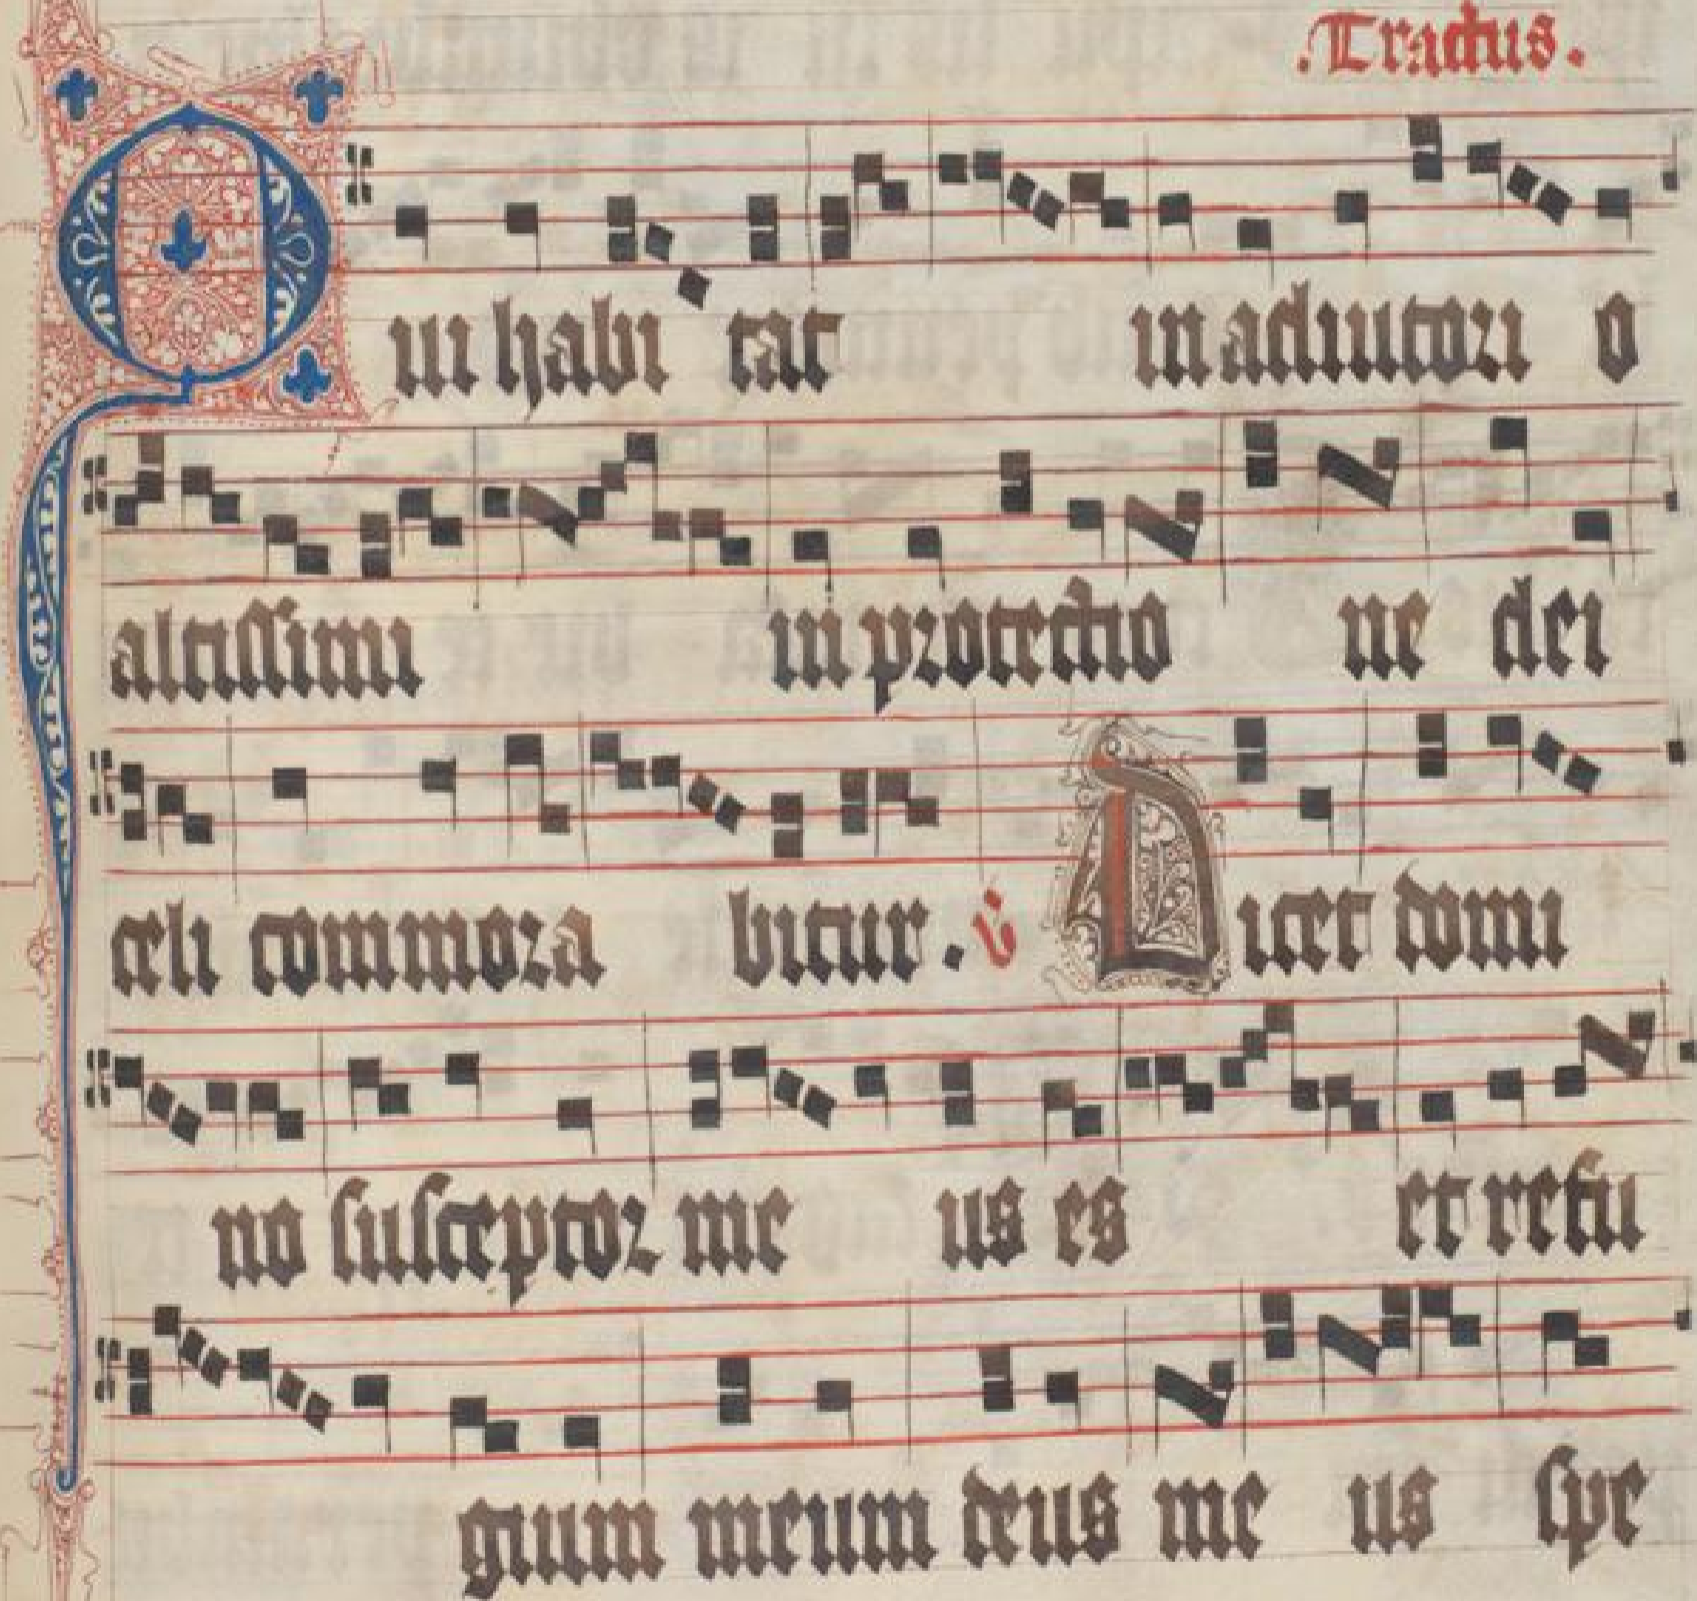 Tractus.
Qui habi tat in adiutori o
altissimi in protectio ne dei
celi commora bitur. V. Dicet domi
no susceptor me us es et refu
gium meum deus me us spe